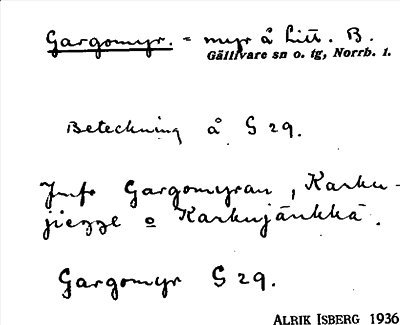 Gargomyr. - myr å Litt. B.
Gällivare sn o. tg, Norrb. l.
Beteckning å G 29.
Jmfr Gargomyran, Karku-
jiegge o Karkujänkkä.
Gargomyr G 29.
ALRIK ISBERG 1936